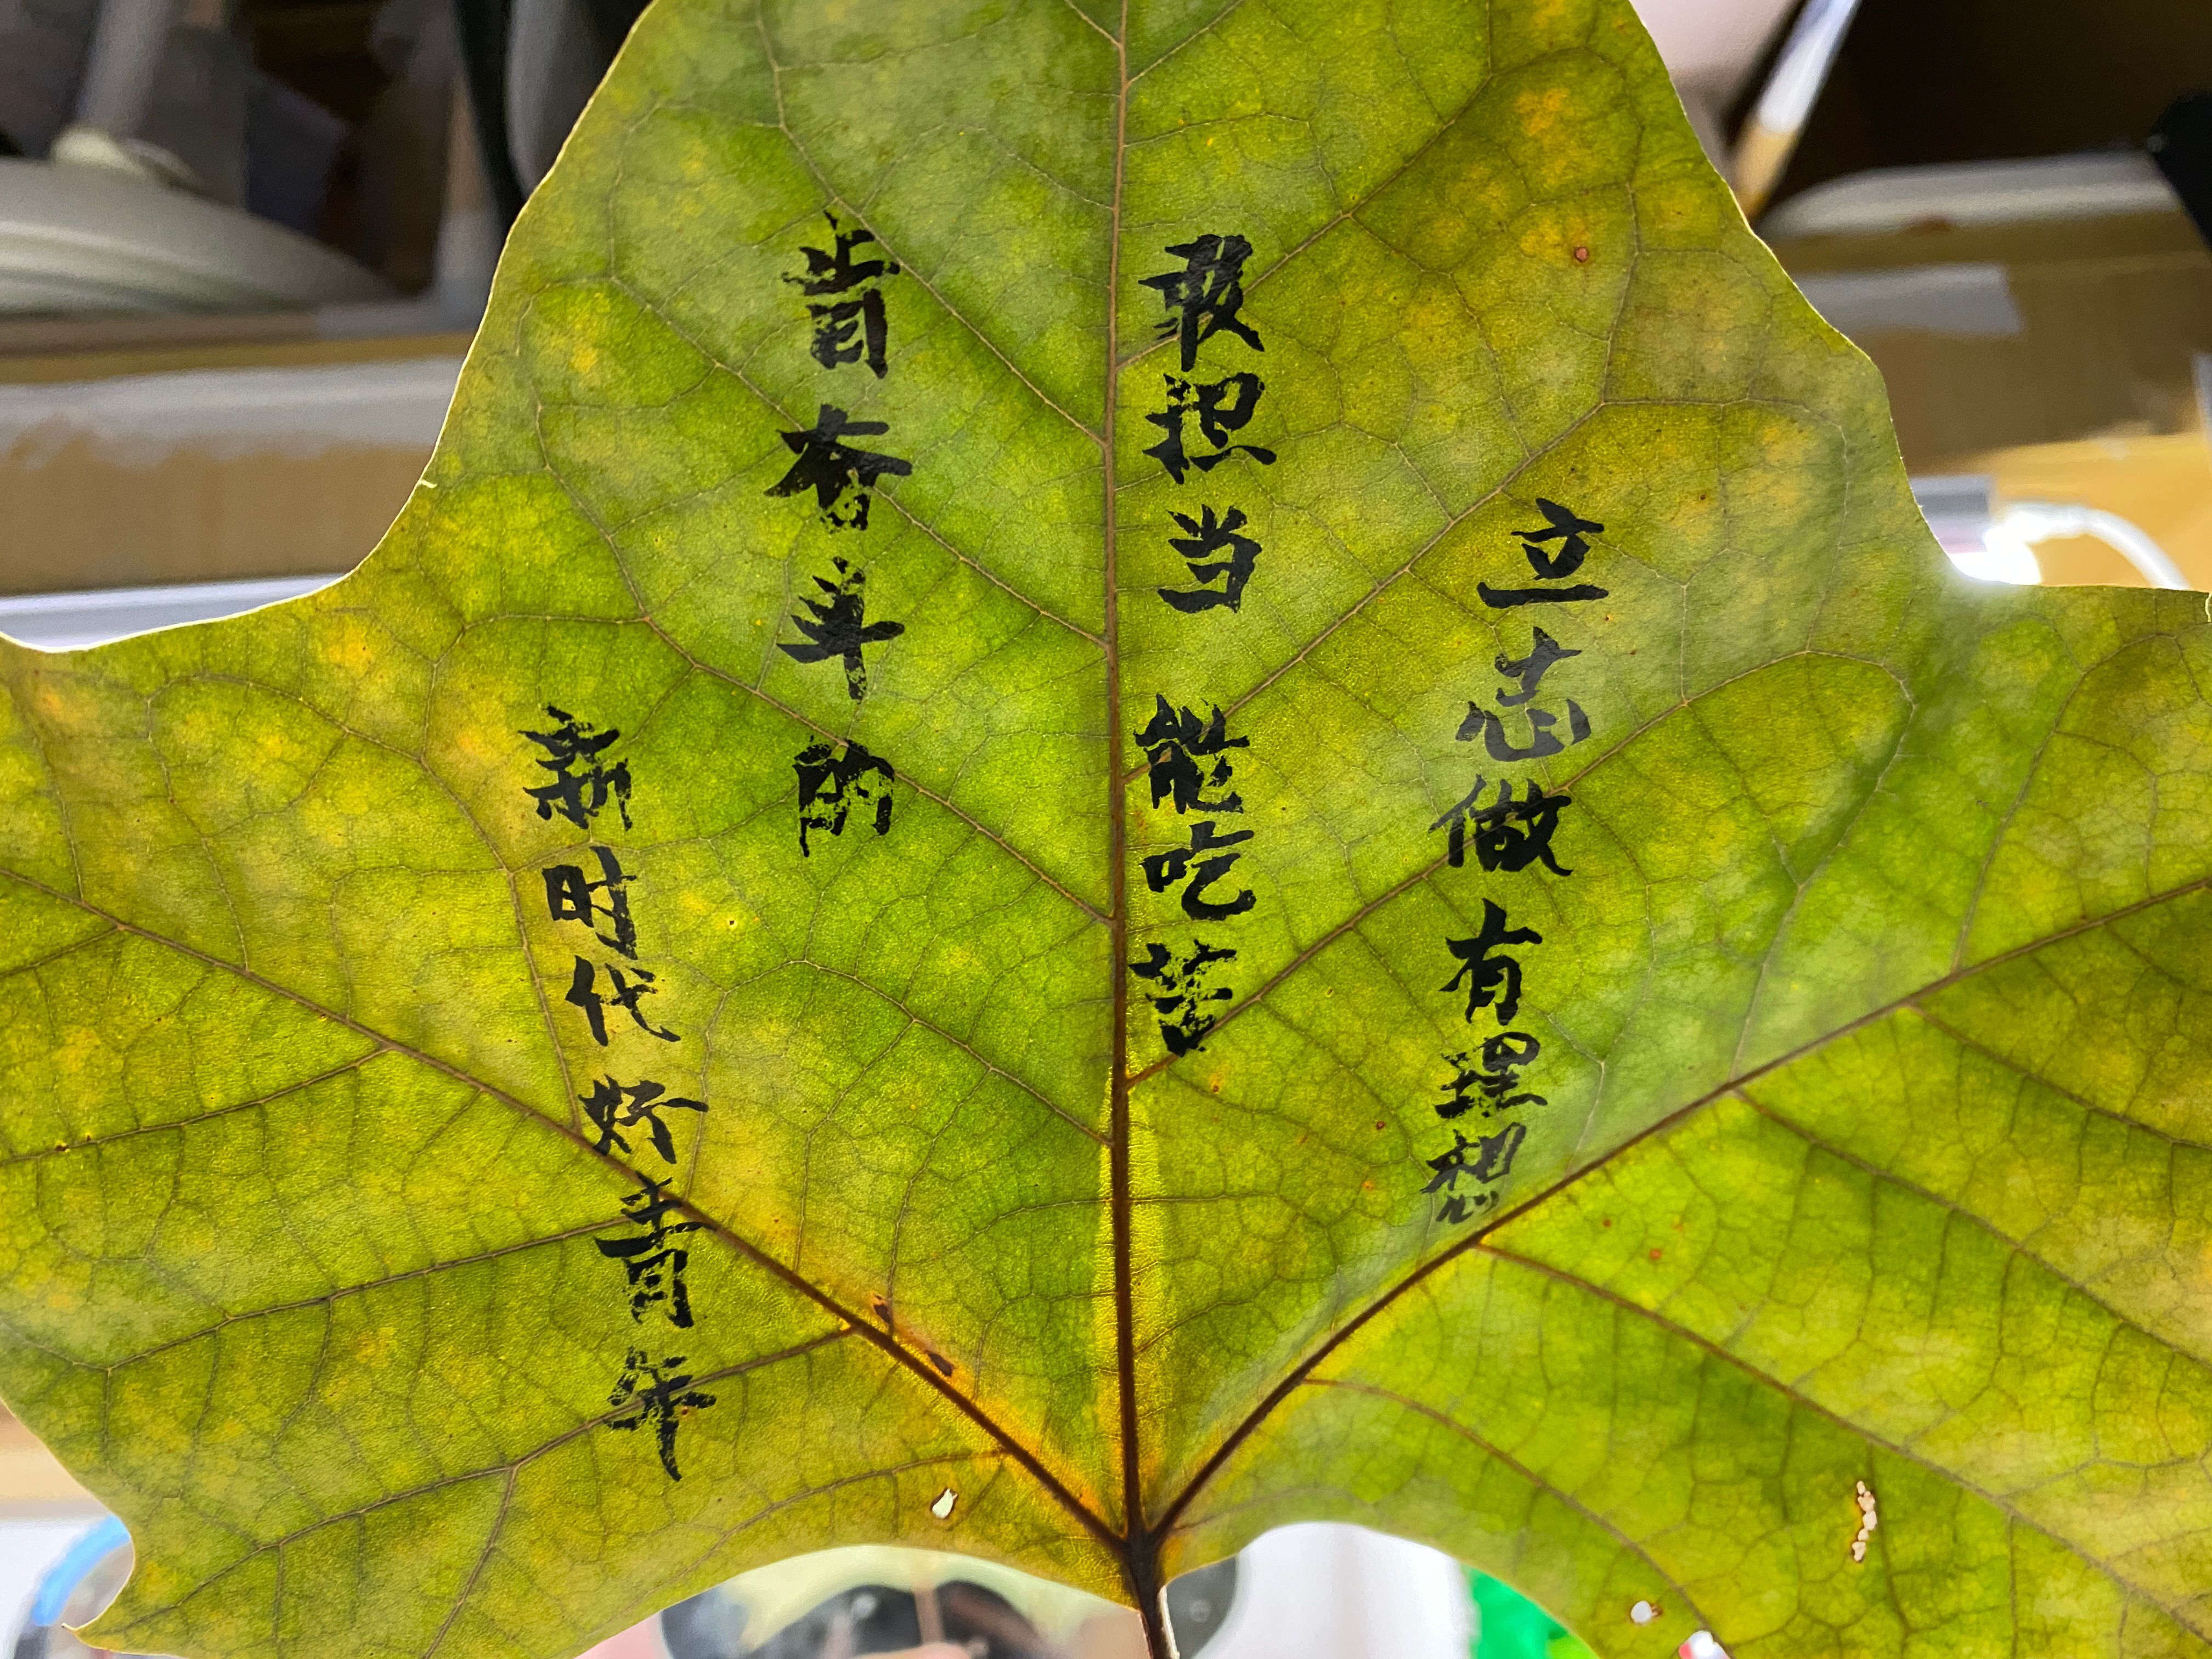 立志做有理想
敢担当 能吃苦
肯奋斗的
新时代好青年